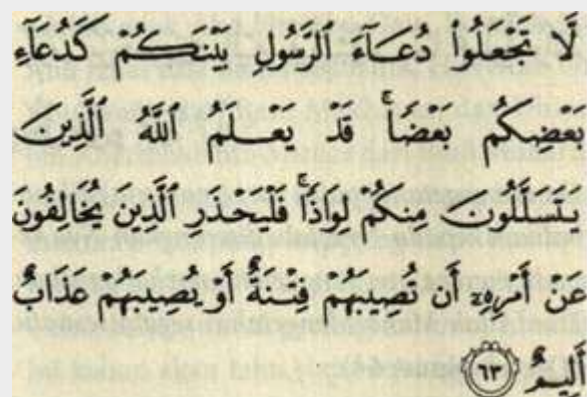 لَّا تَجْعَلُوا۟ دُعَآءَ ٱلرَّسُولِ بَيْنَكُمْ كَدُعَآءِ
بَعْضِكُم بَعْضًا ۚ قَدْ يَعْلَمُ ٱللَّهُ ٱلَّذِينَ
يَتَسَلَّلُونَ مِنكُمْ لِوَاذًا ۚ فَلْيَحْذَرِ ٱلَّذِينَ يُخَالِفُونَ
عَنْ أَمْرِهِۦٓ أَن تُصِيبَهُمْ فِتْنَةٌ أَوْ يُصِيبَهُمْ عَذَابٌ
أَلِيمٌ ٦٣